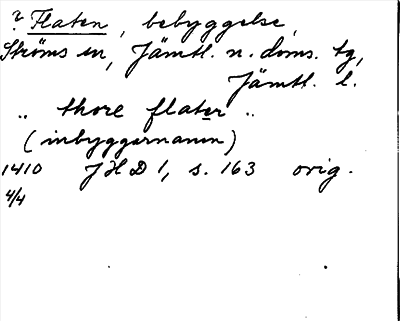 ? Flaten, bebyggelse,
Ströms sn, Jämtl. n. doms. tg,
Jämtl. l.
„ thore flater „
(inbyggarnamn)
1410 JHD 1, s. 163 orig.
4/4